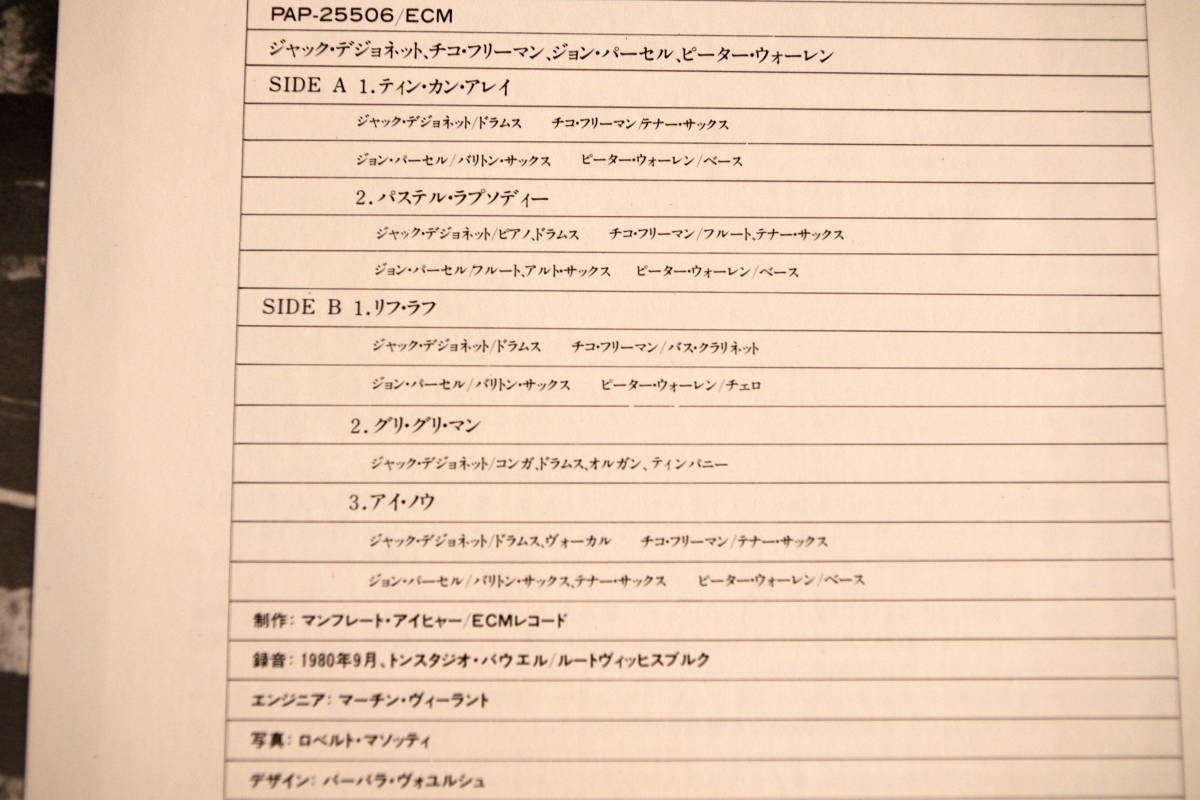 PAP-25506/ECM
ジャック・デジョネット、チコ・フリーマン、ジョン・パーセル、ピーター・ウォーレン
SIDE A 1.ティン・カン・アレイ
ジャック・デジョネット/ドラムス チコ・フリーマン/テナー・サックス
ジョン・パーセル/バリトン・サックス ピーター・ウォーレン/ベース
2.パステル・ラプソディー
ジャック・デジョネット/ピアノ、ドラムス チコ・フリーマン/フルート、テナー・サックス
ジョン・パーセル/フルート、アルト・サックス ピーター・ウォーレン/ベース
SIDE B 1.リフ・ラフ
ジャック・デジョネット/ドラムス チコ・フリーマン/バス・クラリネット
ジョン・パーセル/バリトン・サックス ピーター・ウォーレン/チェロ
2.グリ・グリ・マン
ジャック・デジョネット/コンガ、ドラムス、オルガン、ティンパニー
3.アイ・ノウ
ジャック・デジョネット/ドラムス、ヴォーカル チコ・フリーマン/テナー・サックス
ジョン・パーセル/バリトン・サックス、テナー・サックス ピーター・ウォーレン/ベース
制作: マンフレート・アイヒャー/ECMレコード
録音: 1980年9月、トンスタジオ・バウエル/ルートヴィッヒスブルク
エンジニア: マーチン・ヴィーラント
写真: ロベルト・マソッティ
デザイン: バーバラ・ヴォユルシュ